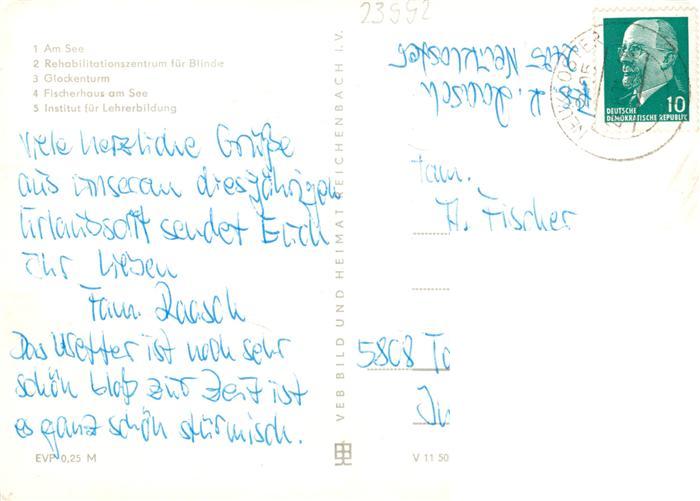 23992
1 Am See
2 Rehabilitationszentrum für Blinde
3 Glockenturm
4 Fischerhaus am See
5 Institut für Lehrerbildung
Viele herzliche Grüße
aus unserem diesjährigen
Urlaubsort sendet Euch
Ihr Lieben
Fam. Raasch
Das Wetter ist noch sehr
schön bloß zur Zeit ist
es ganz schön stürmisch.
EVP 0,25 M
VEB BILD UND HEIMAT REICHENBACH I. V.
R. Raasch
Neukloster
DEUTSCHE
DEMOKRATISCHE REPUBLIK
10
Fam.
H. Fischer
5808 Ta
V 11 50